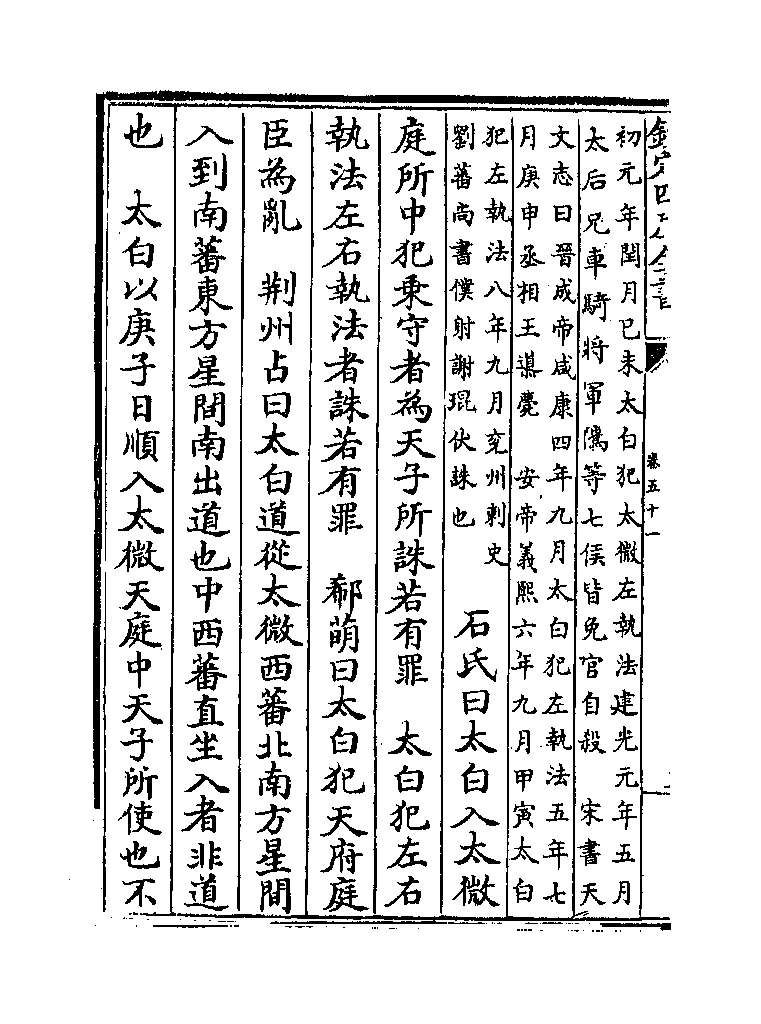 欽定四庫全書
卷五十一
初元年閏月己未太白犯太微左執法建光元年五月
太后兄車騎將軍隲等七侯皆免官自殺　宋書天
文志曰晉成帝咸康四年九月太白犯左執法五年七
月庚申丞相王導薨　安帝義熙六年九月甲寅太白
犯左執法八年九月兖州刺史
劉蕃尚書僕射謝琨伏誅也
石氏曰太白入太微
庭所中犯乘守者為天子所誅若有罪　太白犯左右
執法左右執法者誅若有罪　郗萌曰太白犯天府庭
臣為亂　荆州占曰太白道從太微西蕃北南方星間
入到南蕃東方星間南出道也中西蕃直坐入者非道
也　太白以庚子日順入太微天庭中天子所使也不